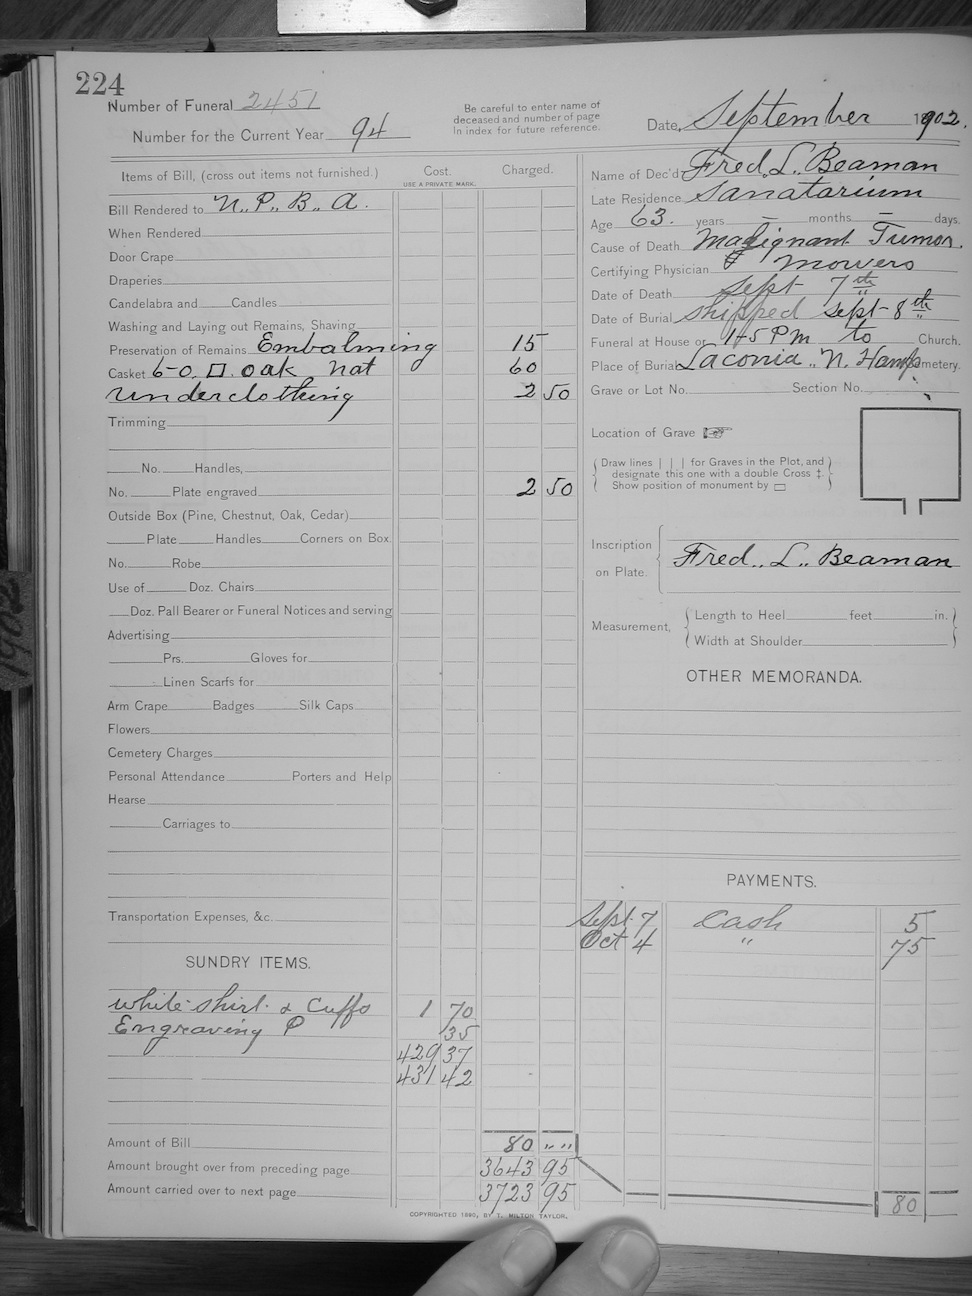 224
Number of Funeral 2451
Number for the Current Year 94
Be careful to enter name of
deceased and number of page
in index for future reference.
Date, September 1902.
Items of Bill, (cross out items not furnished.)
Cost.
USE A PRIVATE MARK.
Charged.
Bill Rendered to N. P. B. A.
When Rendered
Door Crape
Draperies
Candelabra and Candles
Washing and Laying out Remains, Shaving
Preservation of Remains Embalming 15
Casket 6-0 □. oak nat 60
Underclothing 2 50
Trimming
No. Handles,
No. Plate engraved 2 50
Outside Box (Pine, Chestnut, Oak, Cedar)
Plate Handles Corners on Box.
No. Robe
Use of Doz. Chairs
Doz. Pall Bearer or Funeral Notices and serving
Advertising
Prs. Gloves for
Linen Scarfs for
Arm Crape Badges Silk Caps
Flowers
Cemetery Charges
Personal Attendance Porters and Help
Hearse
Carriages to
Transportation Expenses, &c.
SUNDRY ITEMS.
white shirt & Cuffs 1 70
Engraving P 35
429 37
431 42
Amount of Bill 80 " "
Amount brought over from preceding page 3643 95
Amount carried over to next page 3723 95
Name of Dec'd Fred. L. Beaman
Late Residence Sanatarium
Age 63. years — months — days.
Cause of Death Malignant Tumor.
Certifying Physician Mowers
Date of Death Sept 7th
Date of Burial Shipped Sept-8th
Funeral at House or 1-45 PM to Church.
Place of Burial Laconia, N. Hamp Cemetery.
Grave or Lot No. Section No.
Location of Grave ☞
Draw lines | | | for Graves in the Plot, and
designate this one with a double Cross ‡.
Show position of monument by ▭
Inscription
on Plate.
Fred. L. Beaman
Measurement,
Length to Heel feet in.
Width at Shoulder
OTHER MEMORANDA.
PAYMENTS.
Sept. 7 Cash 5
Oct 4 " 75
80
COPYRIGHTED 1890, BY T. MILTON TAYLOR.
1902